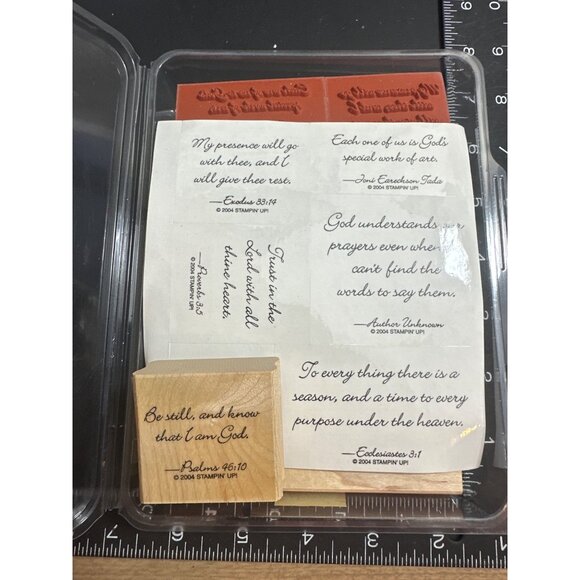 My presence will go
with thee, and I
will give thee rest.
—Exodus 33:14
© 2004 STAMPIN' UP!
Each one of us is God's
special work of art.
—Joni Eareckson Tada
© 2004 STAMPIN' UP!
God understands our
prayers even when
can't find the
words to say them.
—Author Unknown
© 2004 STAMPIN' UP!
Trust in the
Lord with all
thine heart.
—Proverbs 3:5
© 2004 STAMPIN' UP!
To every thing there is a
season, and a time to every
purpose under the heaven.
—Ecclesiastes 3:1
© 2004 STAMPIN' UP!
Be still, and know
that I am God.
—Psalms 46:10
© 2004 STAMPIN' UP!
7 6 5 4 3 2 1